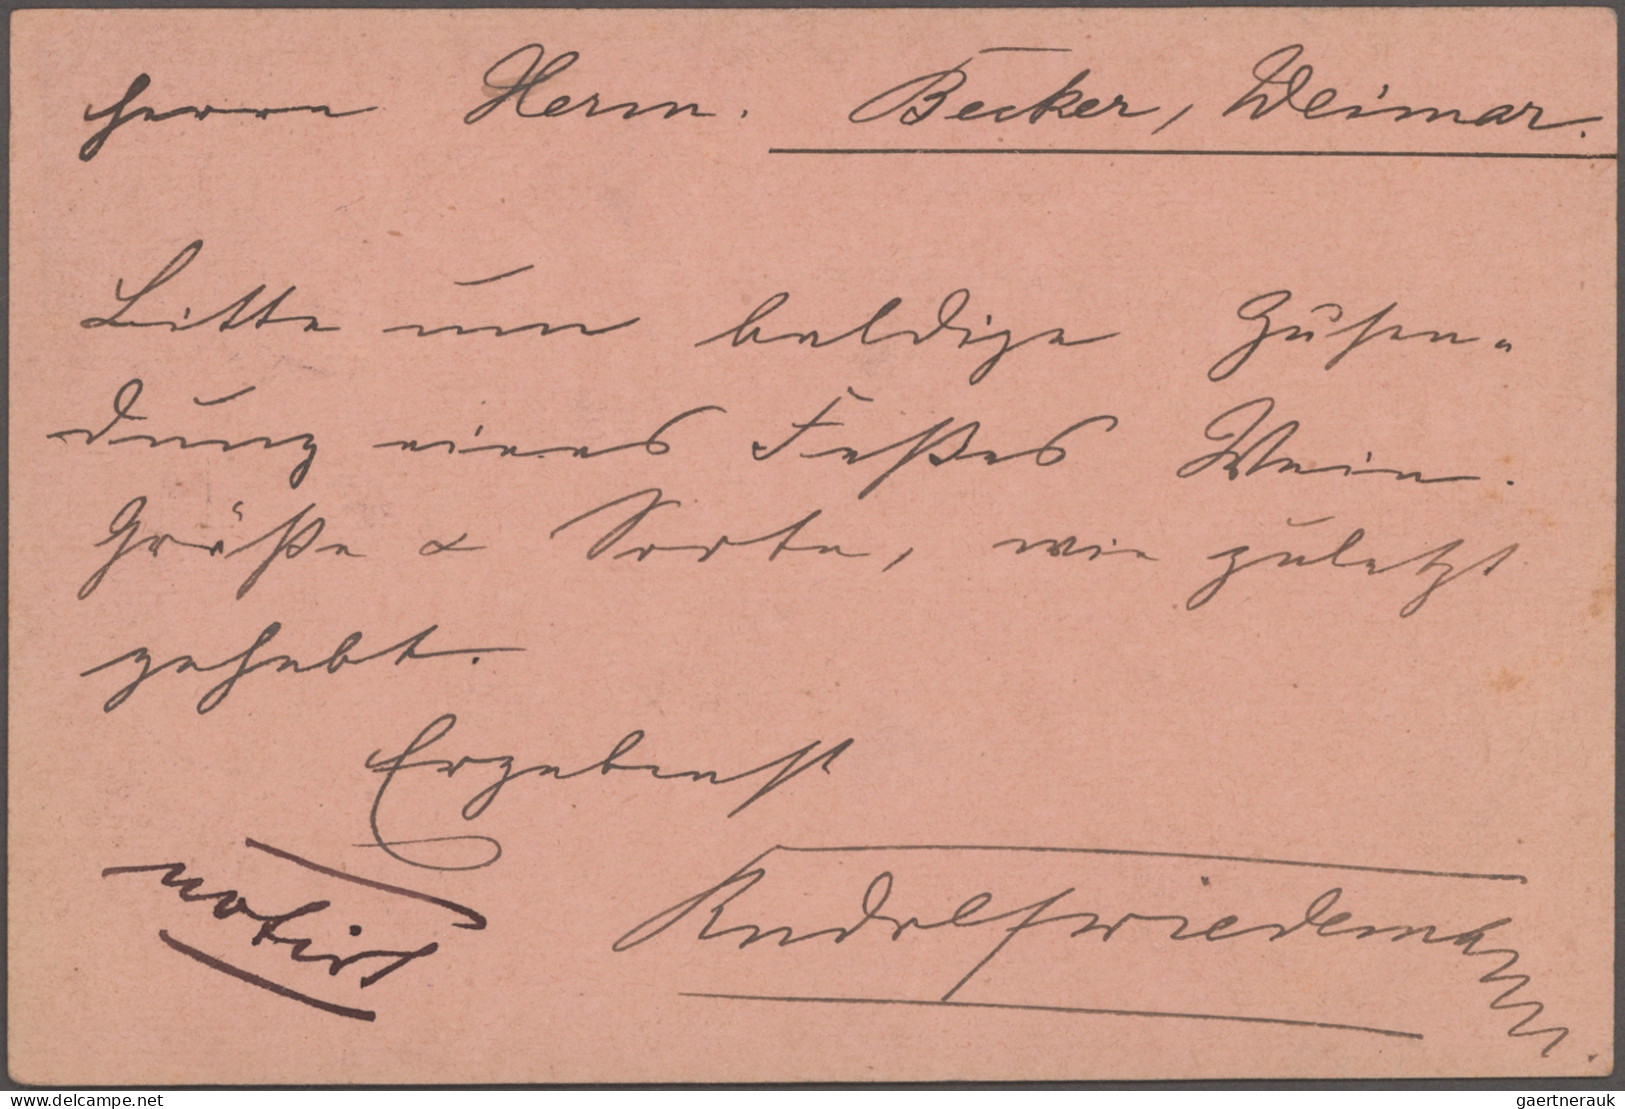 Herrn Herm. Becker, Weimar.
Bitte um baldige Zusen-
dung eines Faßes Wein.
Größe & Sorte, wie zuletzt
gehabt.
Ergebenst
notirt
Rudolf Friedemann.
Delcampe.net
gaertnerauk